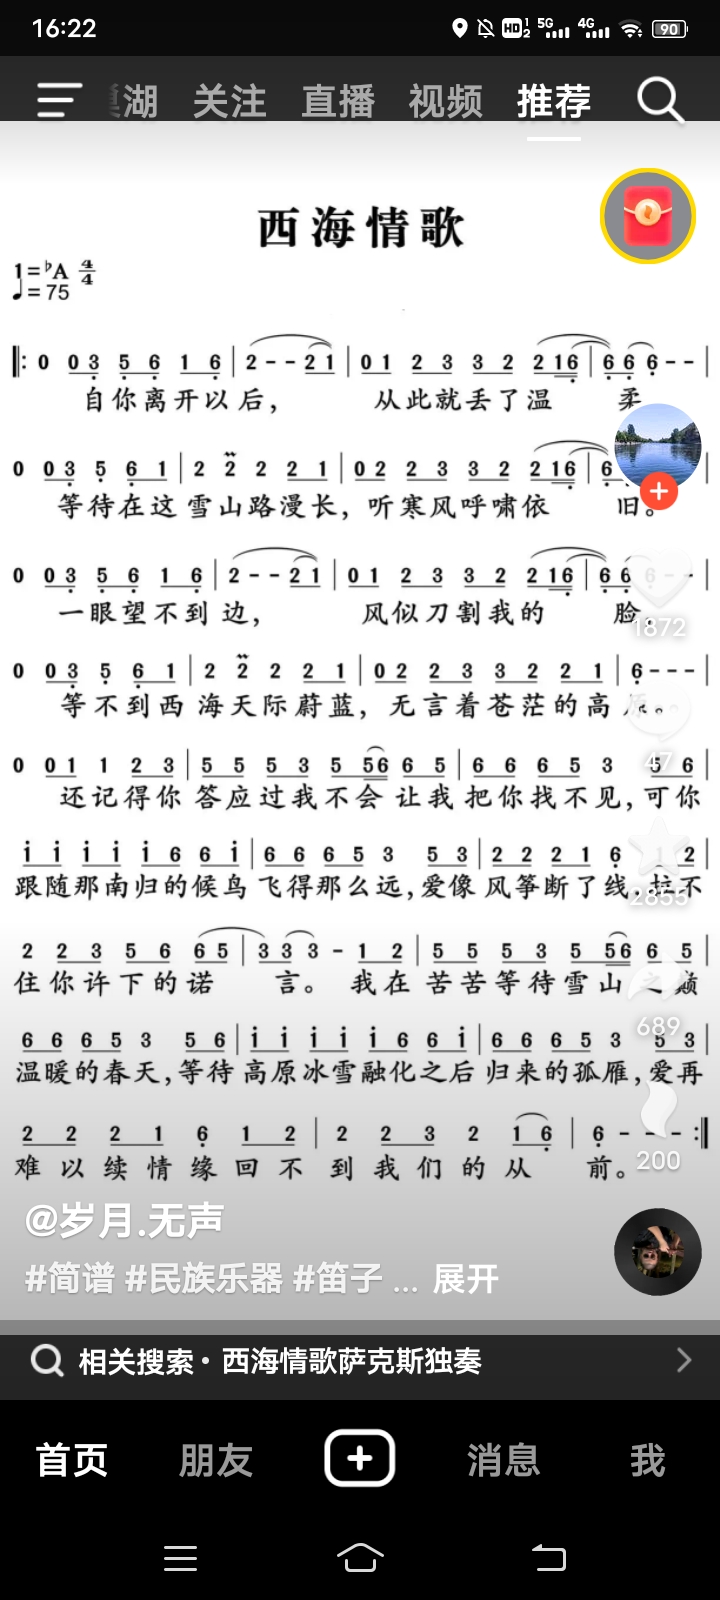 16:22 HD 1 2 5G 4G 90
湖 关注 直播 视频 推荐
西海情歌
1=♭A 4/4
♩=75
‖: 0 0 3 5 6 1 6 | 2 - - 2 1 | 0 1 2 3 3 2 2 1 6 | 6 6 6 - - |
自你离开以后, 从此就丢了温 柔
0 0 3 5 6 1 | 2 2 2 2 1 | 0 2 2 3 3 2 2 1 6 | 6
等待在这 雪山路漫长, 听寒风呼啸依 旧。
0 0 3 5 6 1 6 | 2 - - 2 1 | 0 1 2 3 3 2 2 1 6 | 6 6 6 - - |
一眼望不到 边, 风似刀割我的 脸
1872
0 0 3 5 6 1 | 2 2 2 2 1 | 0 2 2 3 3 2 2 1 | 6 - - - |
等不到西 海天际蔚蓝, 无言着苍茫的高 原。
47
0 0 1 1 2 3 | 5 5 5 3 5 5 6 6 5 | 6 6 6 5 3 5 6
还记得你 答应过我不会 让我 把你找不见, 可你
i i i i i 6 6 i | 6 6 6 5 3 5 3 | 2 2 2 1 6 1 2
跟随那南归的候鸟 飞得那么远, 爱像 风筝断了线, 拉不
2855
2 2 3 5 6 6 5 | 3 3 3 - 1 2 | 5 5 5 3 5 5 6 6 5 |
住你许下的诺 言。 我在 苦苦等待雪山 之巅
689
6 6 6 5 3 5 6 | i i i i i 6 6 i | 6 6 6 5 3 5 3 |
温暖的春天, 等待 高原冰雪融化之后 归来的孤雁, 爱再
2 2 2 1 6 1 2 | 2 2 3 2 1 6 | 6 - - - :‖
难以续情缘回不 到我们的从 前。
200
@岁月.无声
#简谱 #民族乐器 #笛子 ... 展开
相关搜索·西海情歌萨克斯独奏
首页 朋友 消息 我